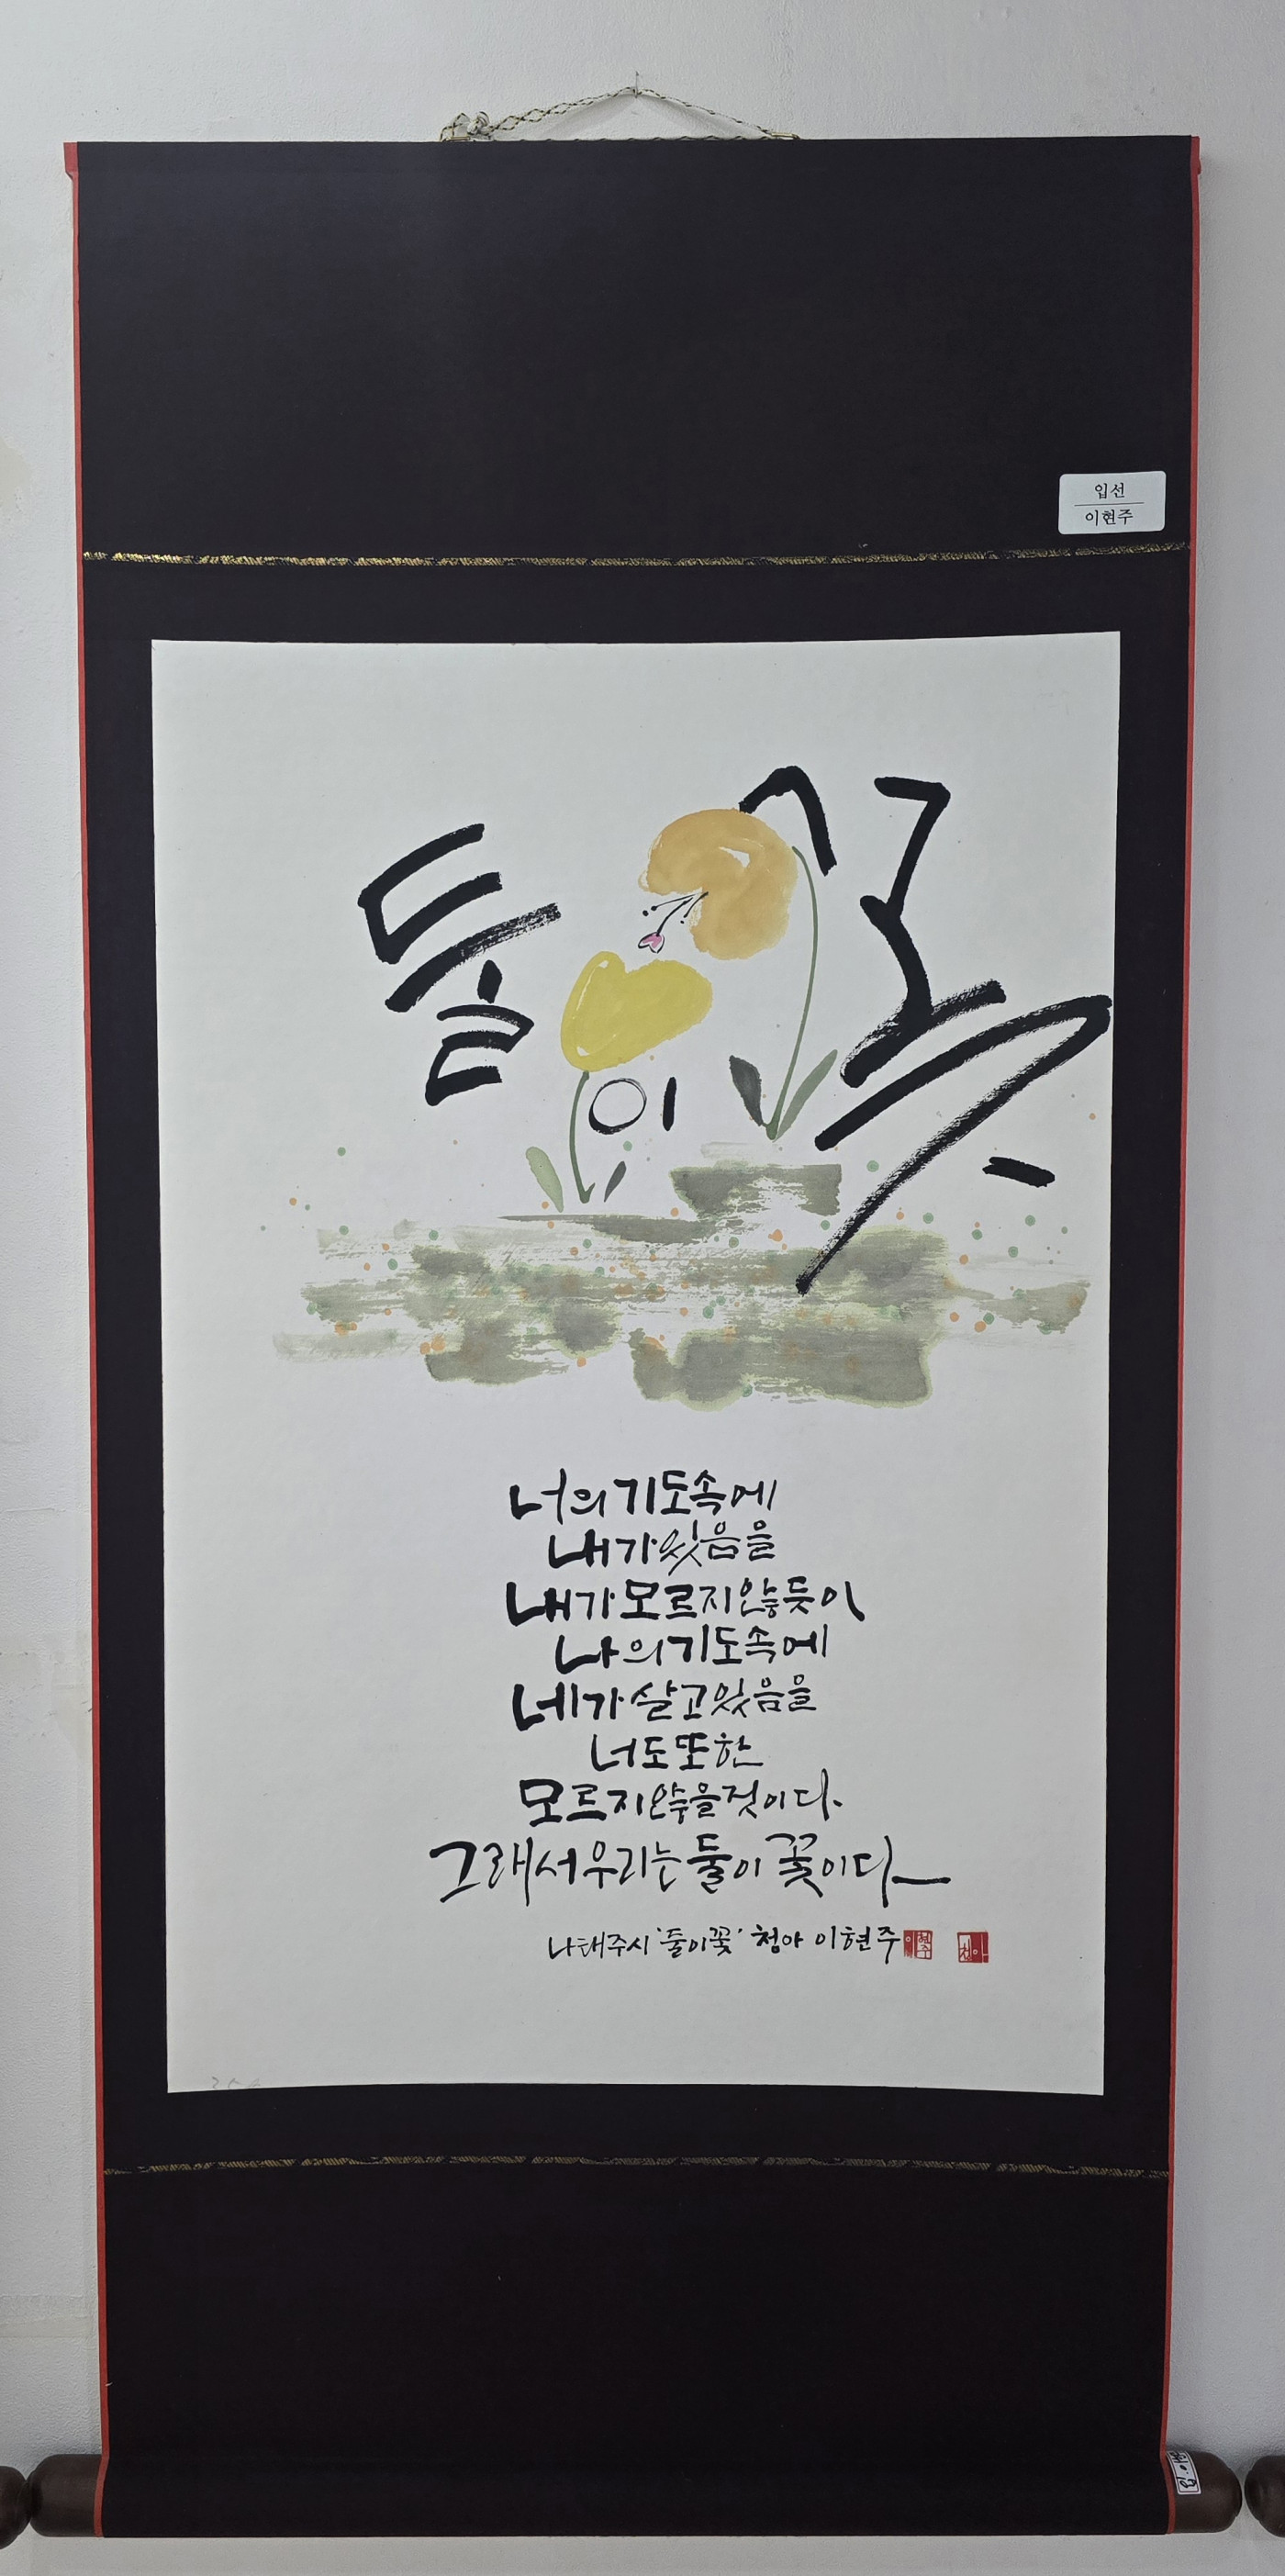 입선
이현주
둘이꽃
너의기도속에
내가있음을
내가모르지않듯이
나의기도속에
네가살고있음을
너도또한
모르지않을것이다.
그래서우리는둘이꽃이다
나태주시 '둘이꽃' 청아 이현주 이현주 청아